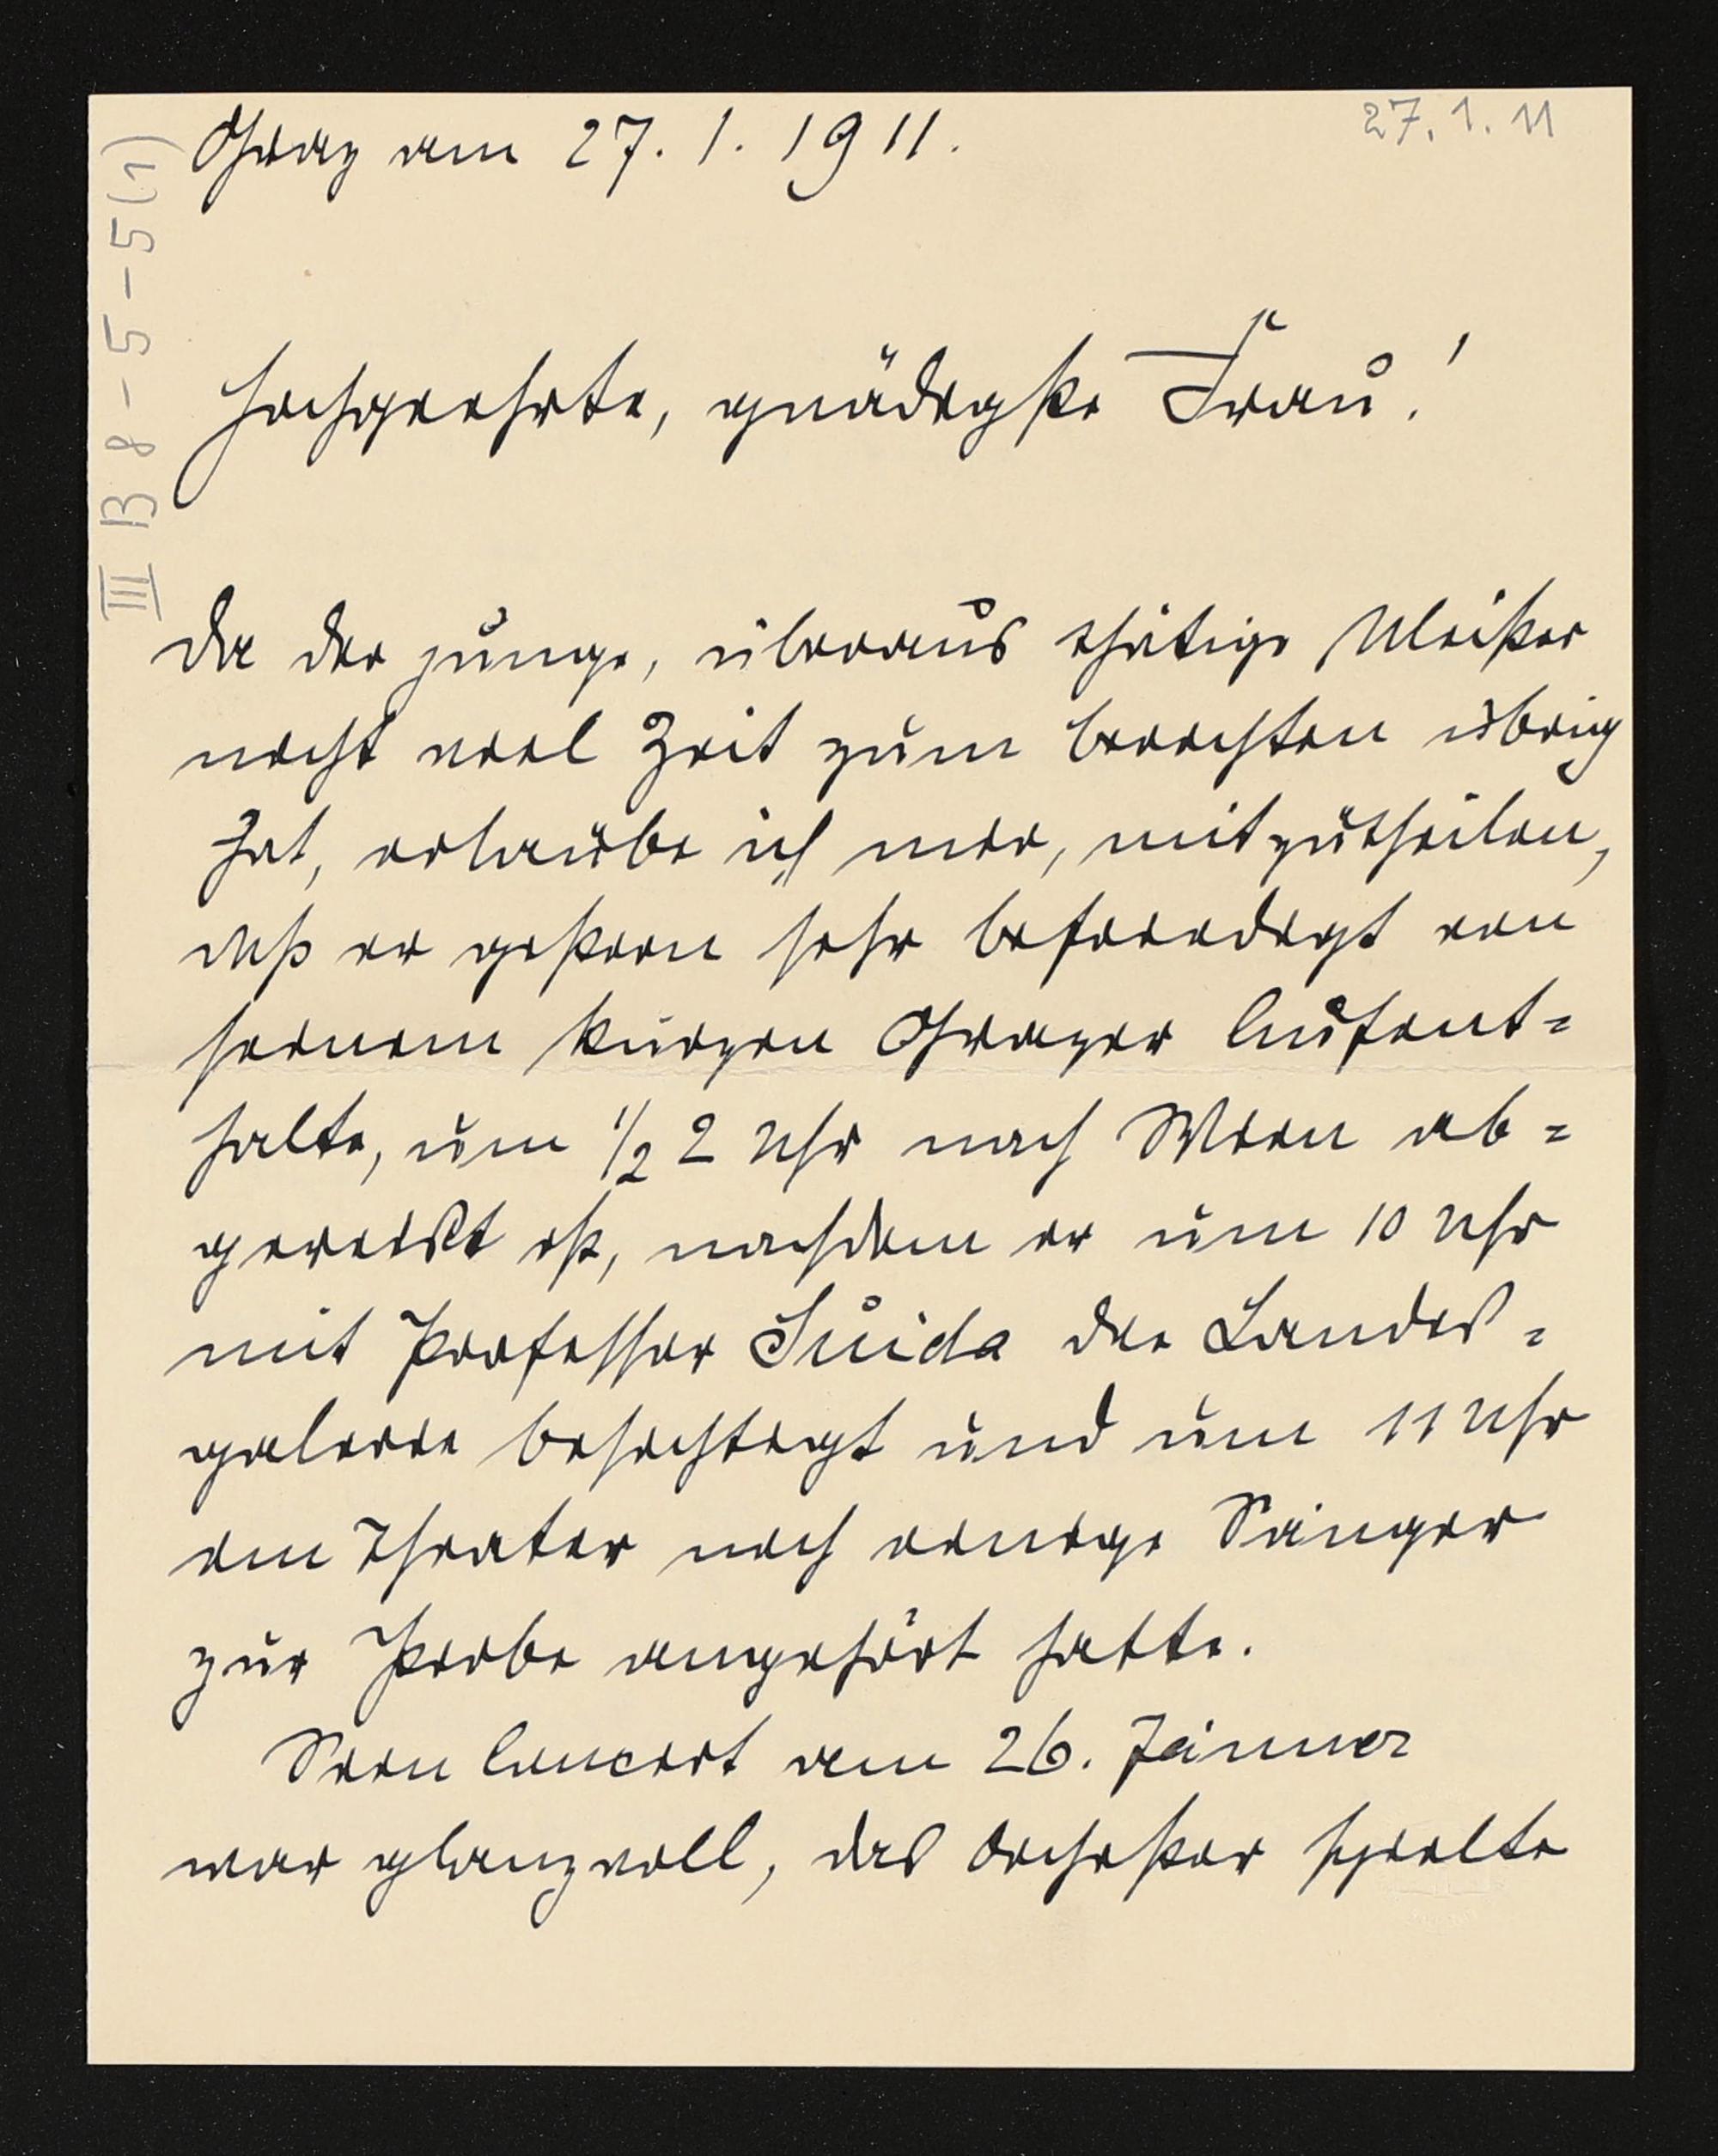 27. 1. 11
III B 8 - 5 - 5 (1)
Graz am 27. 1. 1911.
Hochgeehrte, gnädigste Frau!
Da der junge, überaus thätige Meister
nicht viel Zeit zum berichten übrig
hat, erlaube ich mir, mitzutheilen,
daß er gestern sehr befriedigt von
seinem kurzen Grazer Aufent=
halte, um 1/2 2 Uhr nach Wien ab=
gereist ist, nachdem er um 10 Uhr
mit Professor Suida die Landes=
galerie besichtigt und um 11 Uhr
im Theater noch einige Sänger
zur Probe angehört hatte.
Sein Concert am 26. Jänner
war glanzvoll, das Orchester spielte